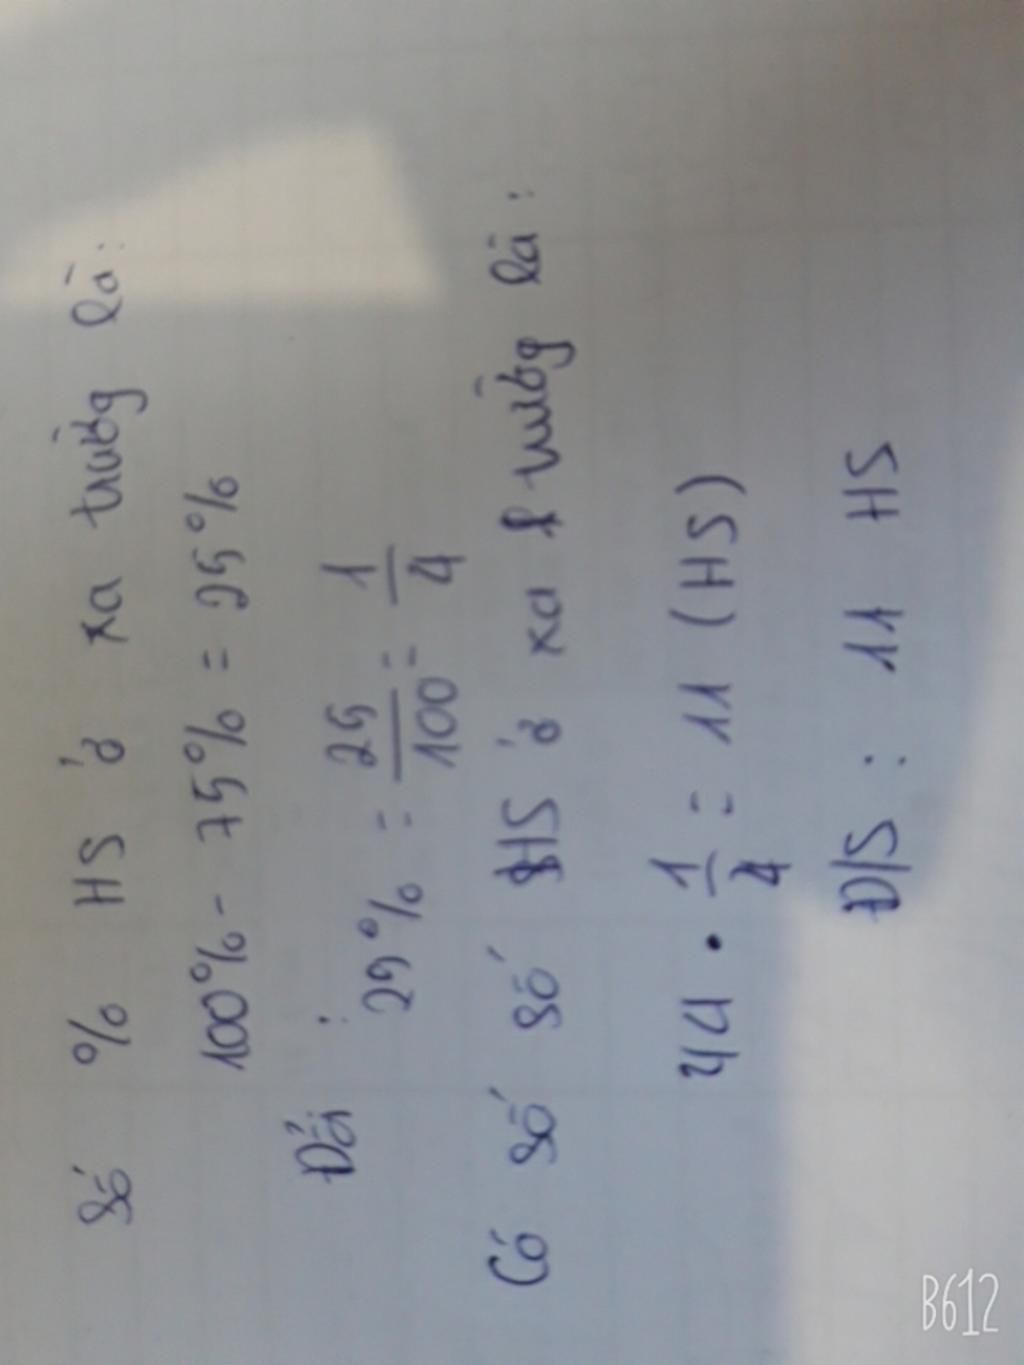 Số % HS ở xa trường là:
100% - 75% = 25%
Đổi :
25% = 25/100 = 1/4
Có số số HS ở xa trường là :
44 . 1/4 = 11 (HS)
Đ/S : 11 HS
B612